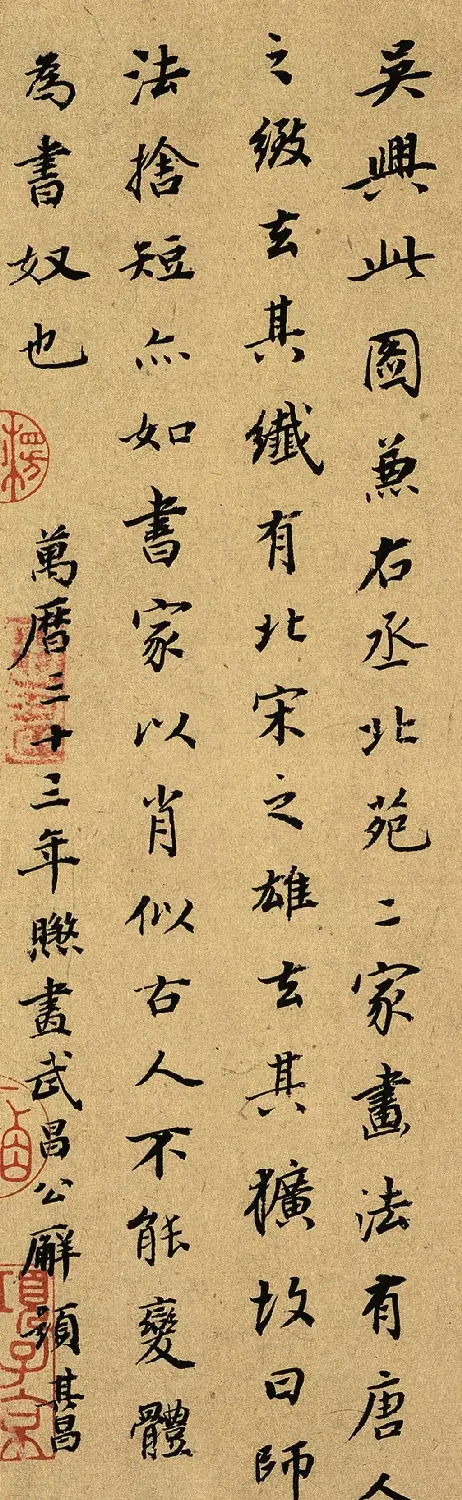 吳興此圖兼右丞北苑二家畫法有唐人
之緻去其纖有北宋之雄去其獷故曰師
法捨短亦如書家以肖似古人不能變體
為書奴也
萬曆三十三年畫武昌公廨題其昌
項子京